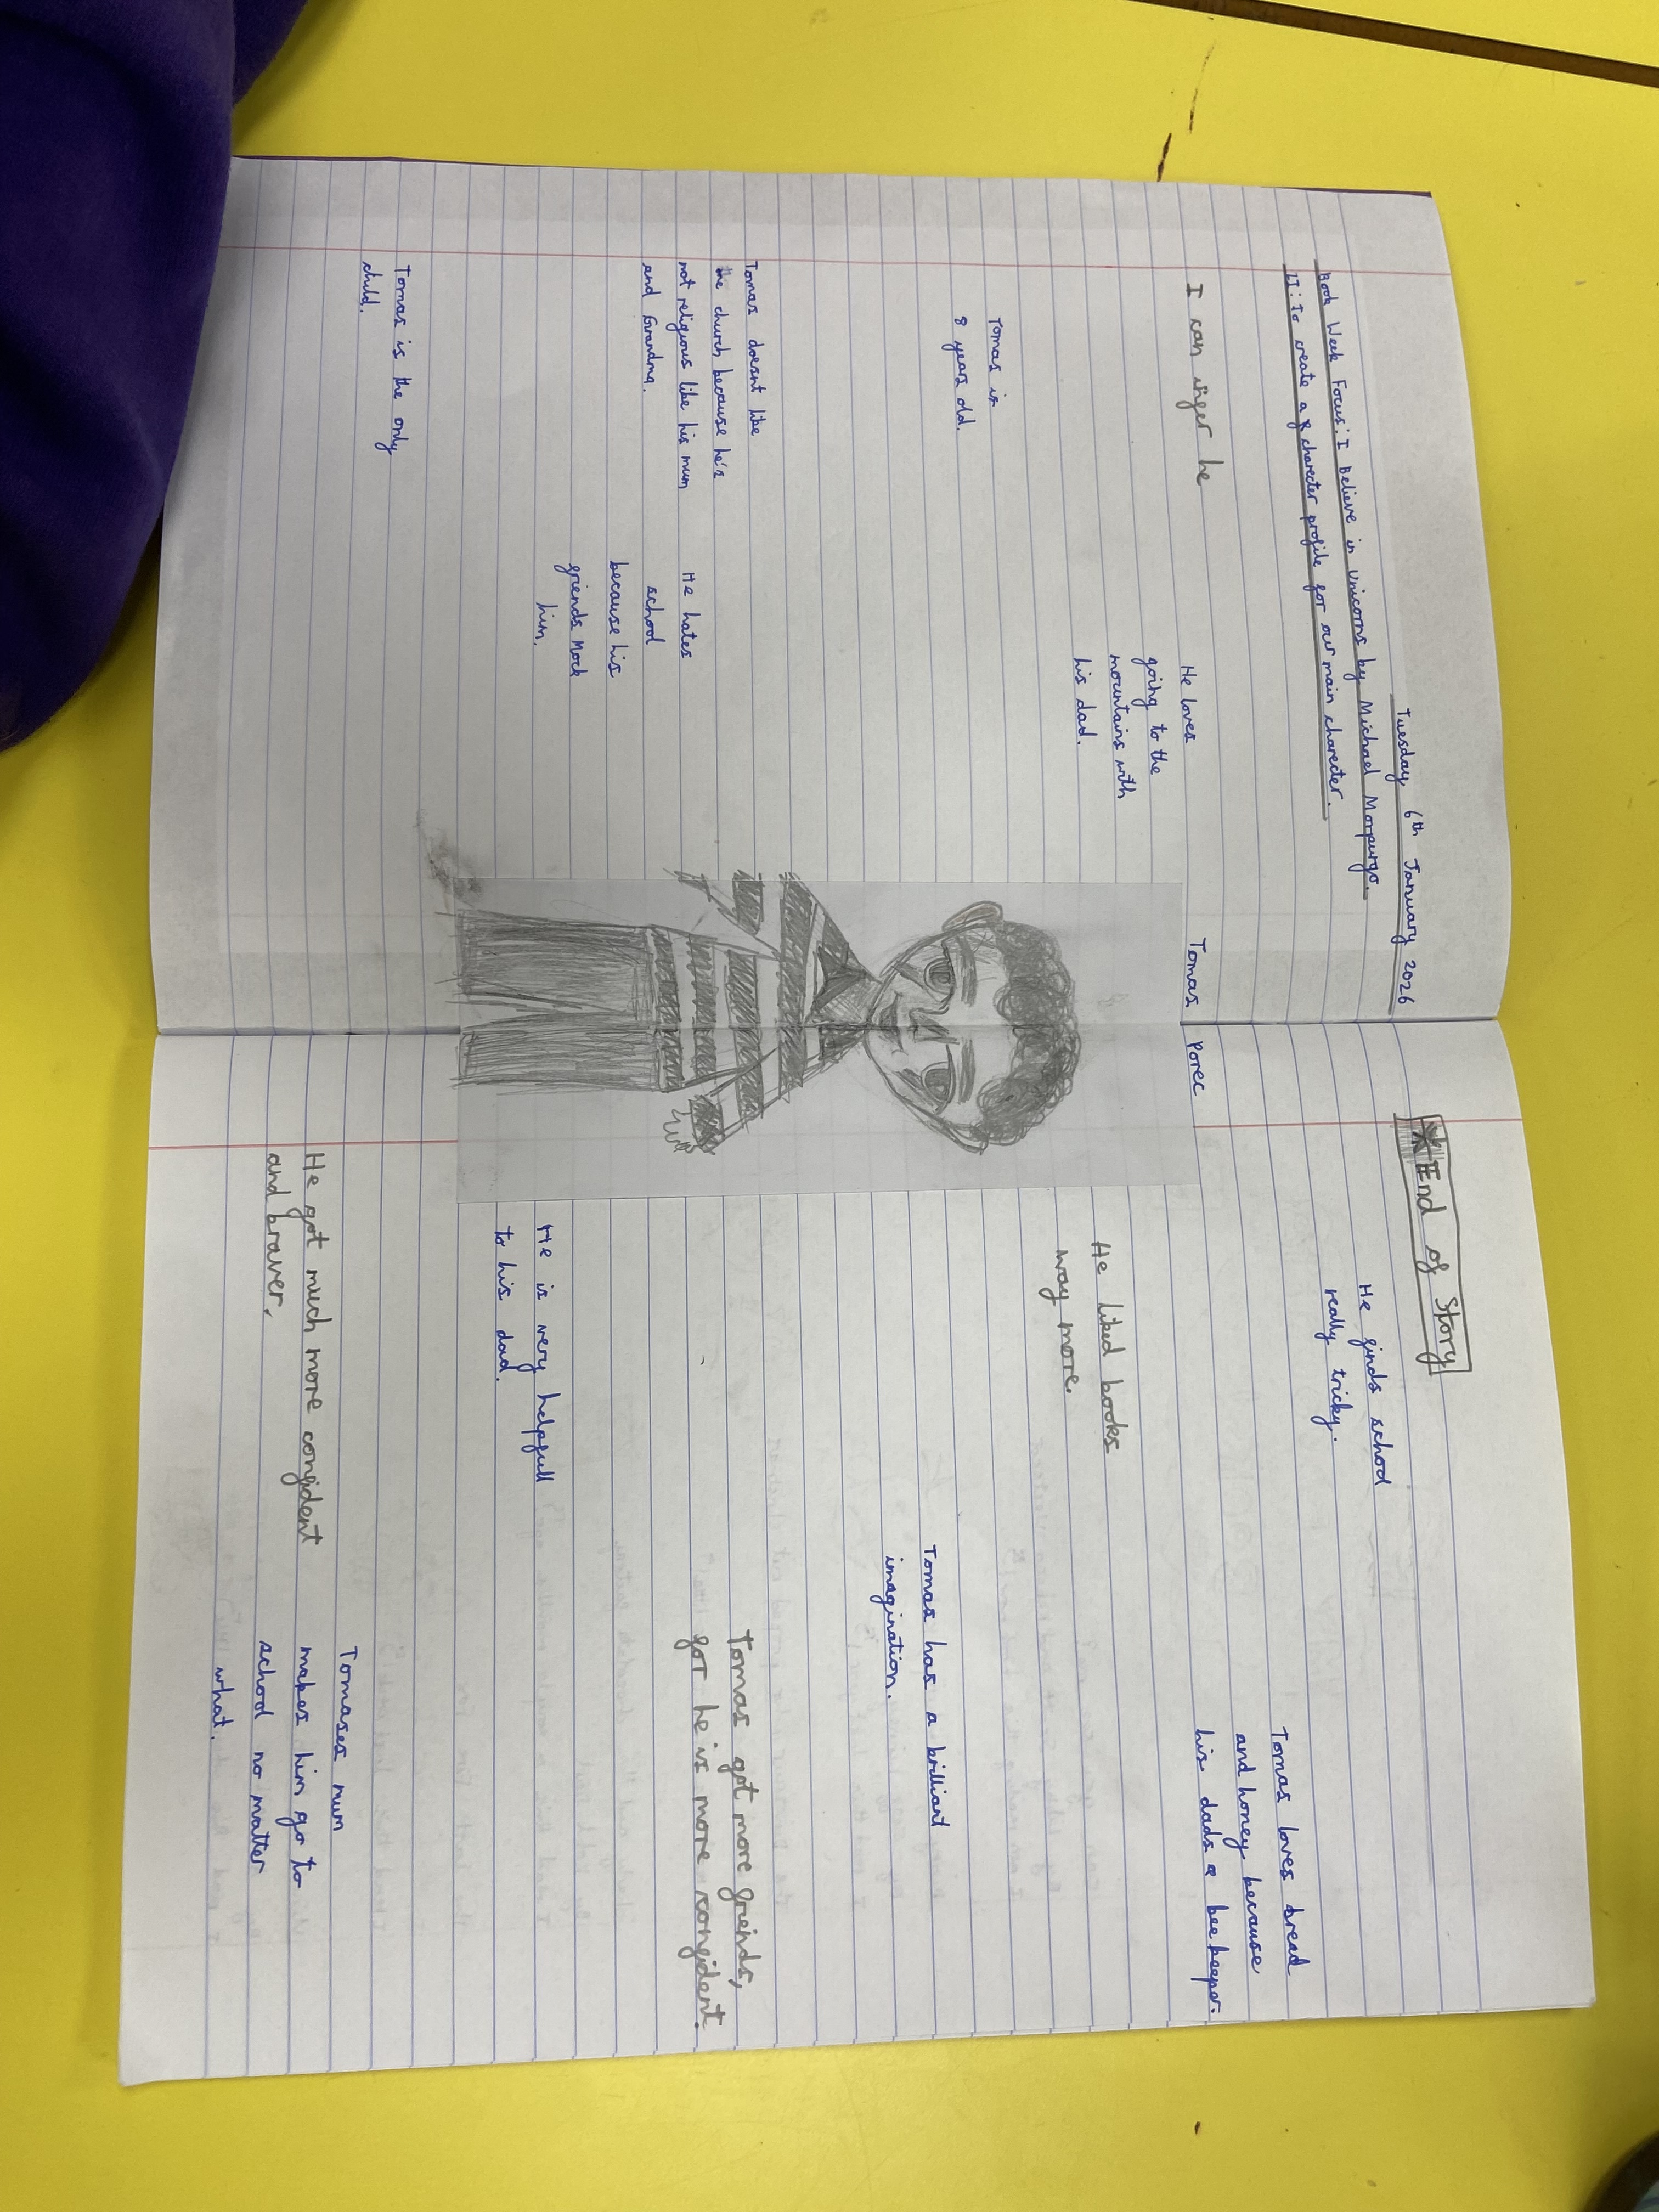 Tuesday 6th January 2026
Book Week Focus: I Believe in Unicorns by Michael Morpurgo.
LI: To create a charecter profile for our main charecter.
I can infer he
He loves
going to the
mountains with
his dad.
Tomas is
8 years old.
Tomas doesnt like
the church because he's
not religious like his mum
and Grandma.
He hates
school
because his
friends mock
him.
Tomas is the only
child.
Tomas Porec
*End of Story
He finds school
really tricky.
Tomas loves bread
and honey because
his dads a bee keeper.
He liked books
way more.
Tomas has a brilliant
imagination.
Tomas got more freinds,
for he is more confident.
He is very helpfull
to his dad.
He got much more confident
and braver.
Tomases mum
makes him go to
school no matter
what.